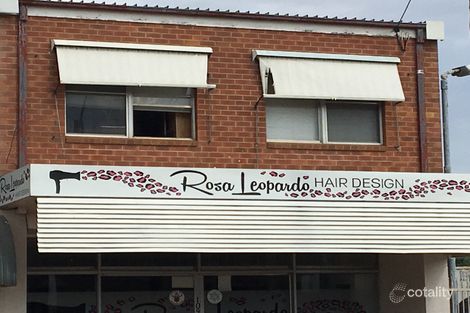 Rosa Leopardo HAIR DESIGN
Rosa Leopardo
cotality